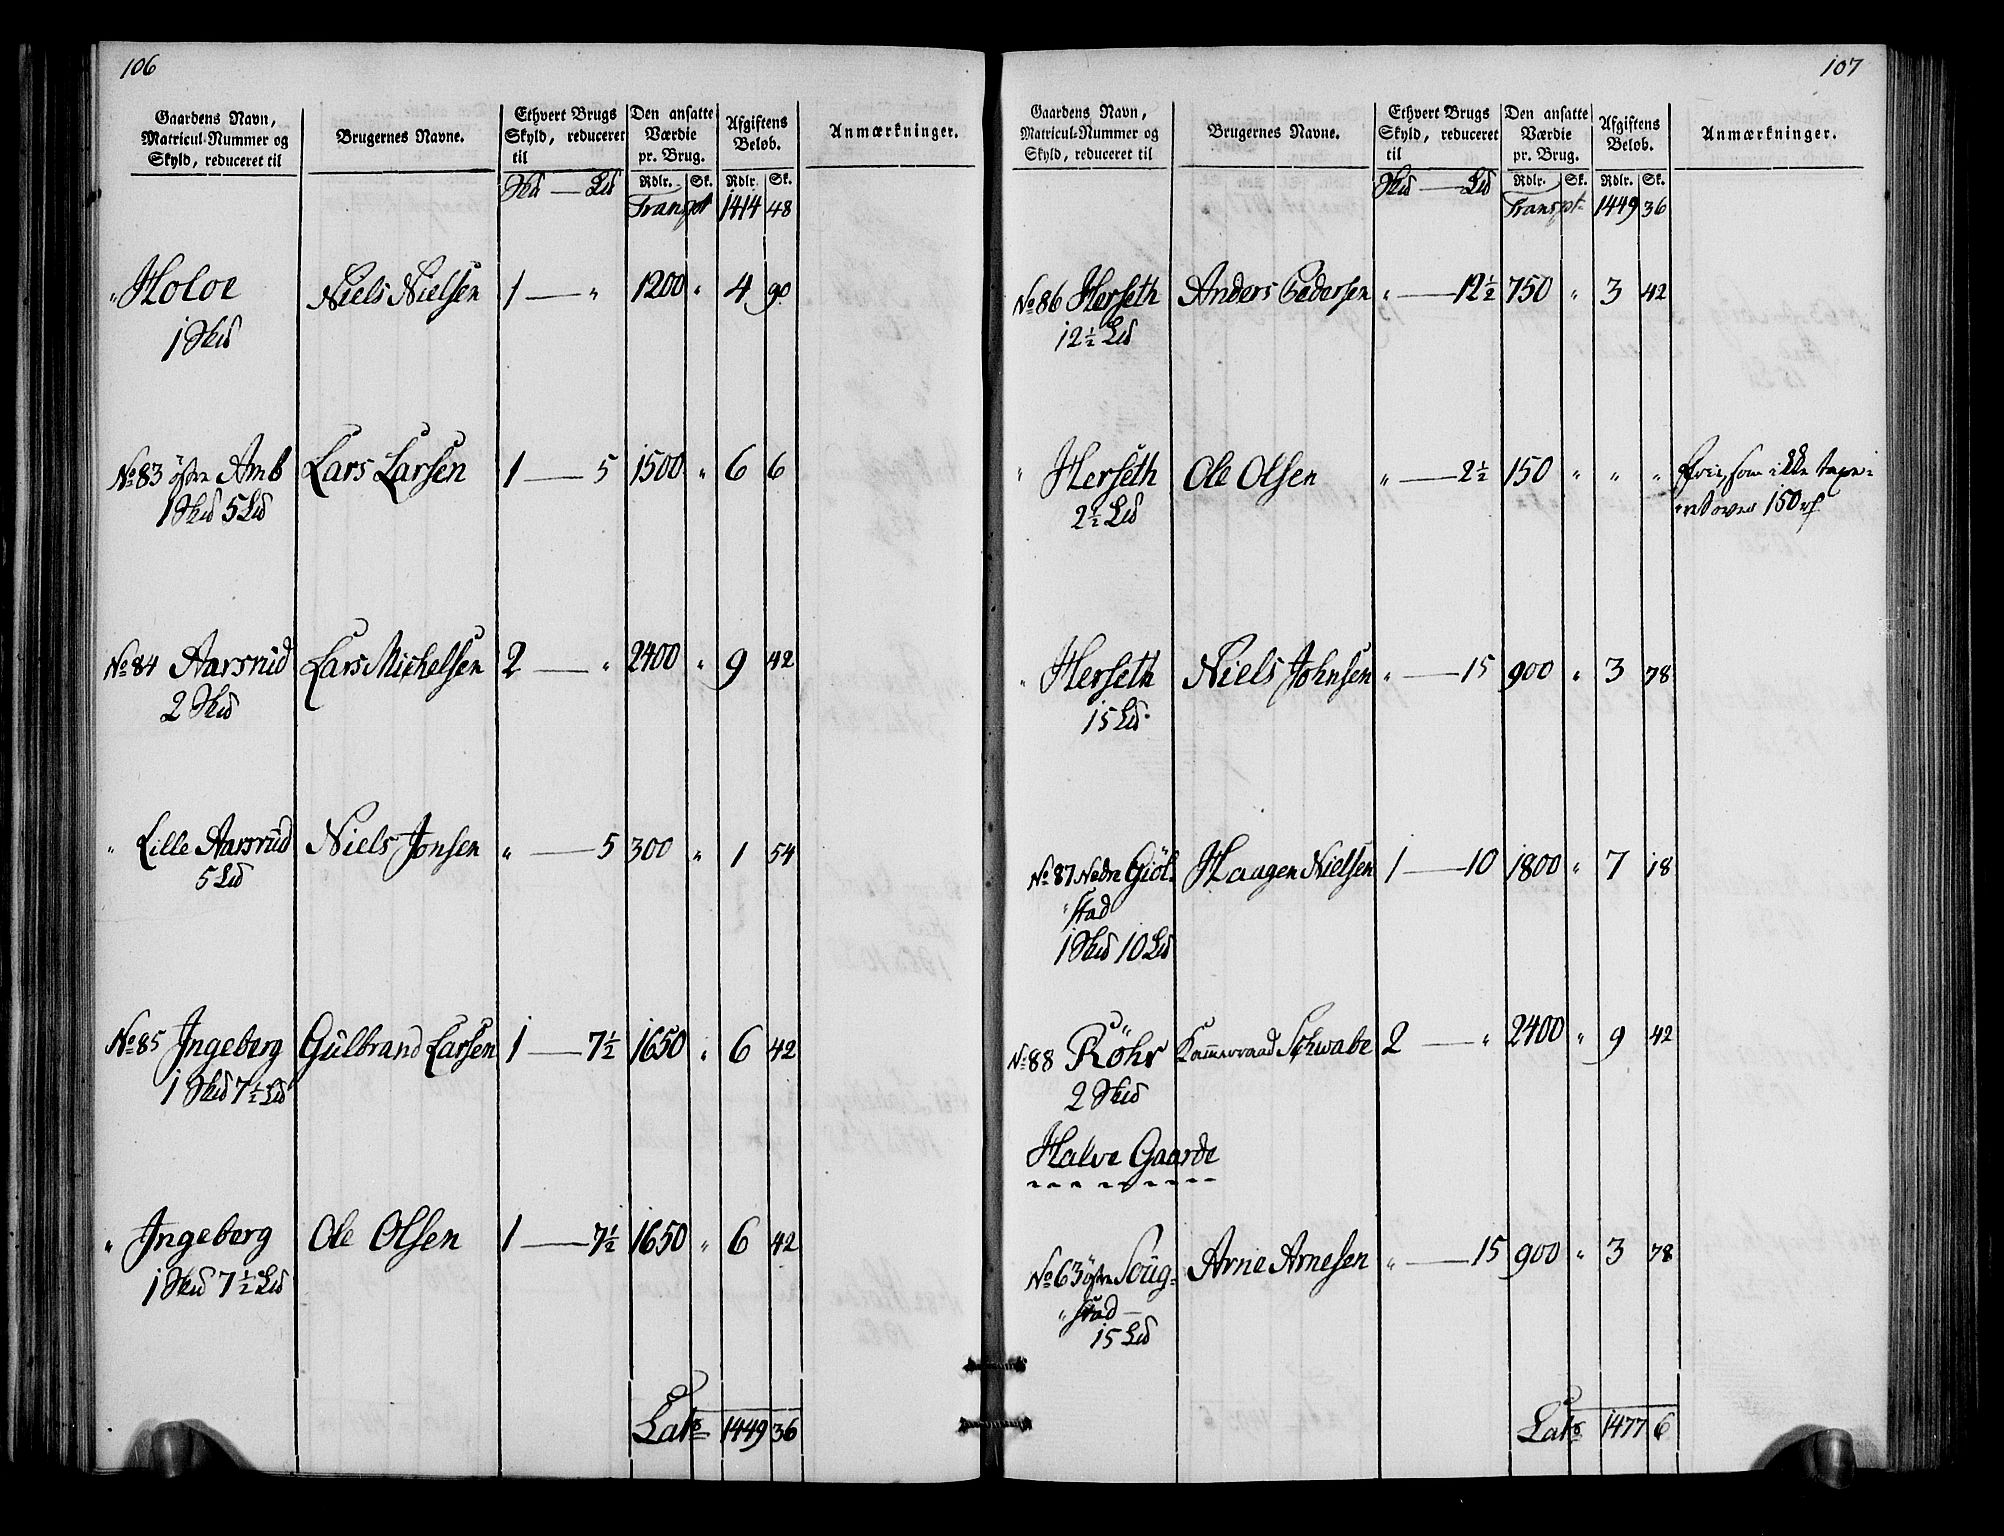 106
Gaardens Navn, Matricul-Nummer og Skyld, reduceret til
Brugernes Navne.
Ethvert Brugs Skyld, reduceret til
Den ansatte Værdie pr. Brug.
Afgiftens Beløb.
Anmærkninger.
Skd — Ld Rdlr. Sk. Rdlr. Sk.
Transpt 1414 48
" Holoe Niels Nielsen 1 — " 1200 " 4 90
1 Skd
No 83 östre Amb Lars Larsen 1 — 5 1500 " 6 6
1 Skd 5 Ld
No 84 Aarsrud Lars Michelsen 2 — " 2400 " 9 42
2 Skd
" Lille Aarsrud Niels Jonsen " — 5 300 " 1 54
5 Ld
No 85 Ingeberg Gulbrand Larsen 1 — 7½ 1650 " 6 42
1 Skd 7½ Ld
" Ingeberg Ole Olsen 1 — 7½ 1650 " 6 42
1 Skd 7½ Ld
Lats 1449 36
107
Gaardens Navn, Matricul-Nummer og Skyld, reduceret til
Brugernes Navne.
Ethvert Brugs Skyld, reduceret til
Den ansatte Værdie pr. Brug.
Afgiftens Beløb.
Anmærkninger.
Skd — Ld Rdlr. Sk. Rdlr. Sk.
Transpt 1449 36
No 86 Herseth Anders Pedersen " — 12½ 750 " 3 42
12½ Ld
" Herseth Ole Olsen " — 2½ 150 " " " Frie, som ikke taxe-
2½ Ld ret over 150 rd
" Herseth Niels Johnsen " — 15 900 " 3 78
15 Ld
No 87 Nedre Giöl- Haagen Nielsen 1 — 10 1800 " 7 18
" stad
1 Skd 10 Ld
No 88 Röhr Kammerraad Schwabe 2 — " 2400 " 9 42
2 Skd
Halve Gaarde
No 63 östre Soug- Arne Arnesen " — 15 900 " 3 78
" stad
15 Ld
Lats 1477 6